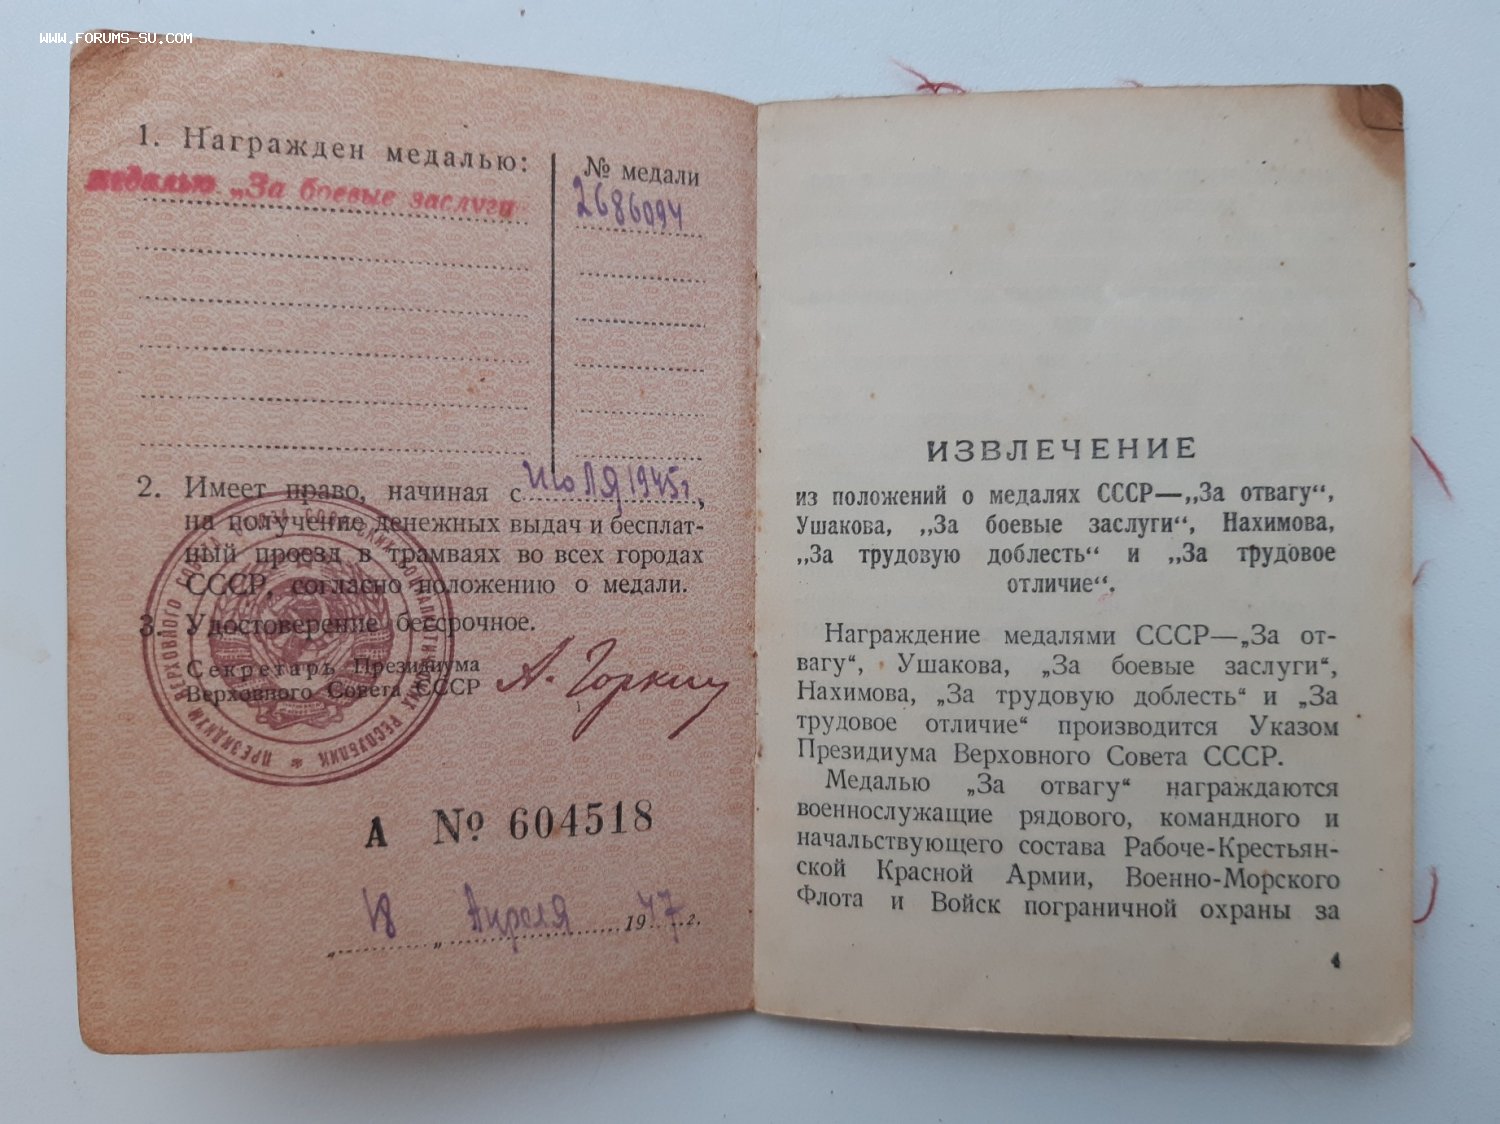 WWW.FORUMS-SU.COM
1. Награжден медалью:
№ медали
медалью „За боевые заслуги
2686094
2. Имеет право, начиная с июля 1945г,
на получение денежных выдач и бесплат-
ный проезд в трамваях во всех городах
СССР, согласно положению о медали.
3. Удостоверение бессрочное.
Секретарь Президиума
Верховного Совета СССР
А. Горкин
ПРЕЗИДИУМ ВЕРХОВНОГО СОВЕТА СОЮЗА СОВЕТСКИХ СОЦИАЛИСТИЧЕСКИХ РЕСПУБЛИК *
А № 604518
„18 „ Апреля 1947 г.
ИЗВЛЕЧЕНИЕ
из положений о медалях СССР—„За отвагу“,
Ушакова, „За боевые заслуги“, Нахимова,
„За трудовую доблесть“ и „За трудовое
отличие“.
Награждение медалями СССР—„За от-
вагу“, Ушакова, „За боевые заслуги“,
Нахимова, „За трудовую доблесть“ и „За
трудовое отличие“ производится Указом
Президиума Верховного Совета СССР.
Медалью „За отвагу“ награждаются
военнослужащие рядового, командного и
начальствующего состава Рабоче-Крестьян-
ской Красной Армии, Военно-Морского
Флота и Войск пограничной охраны за
4